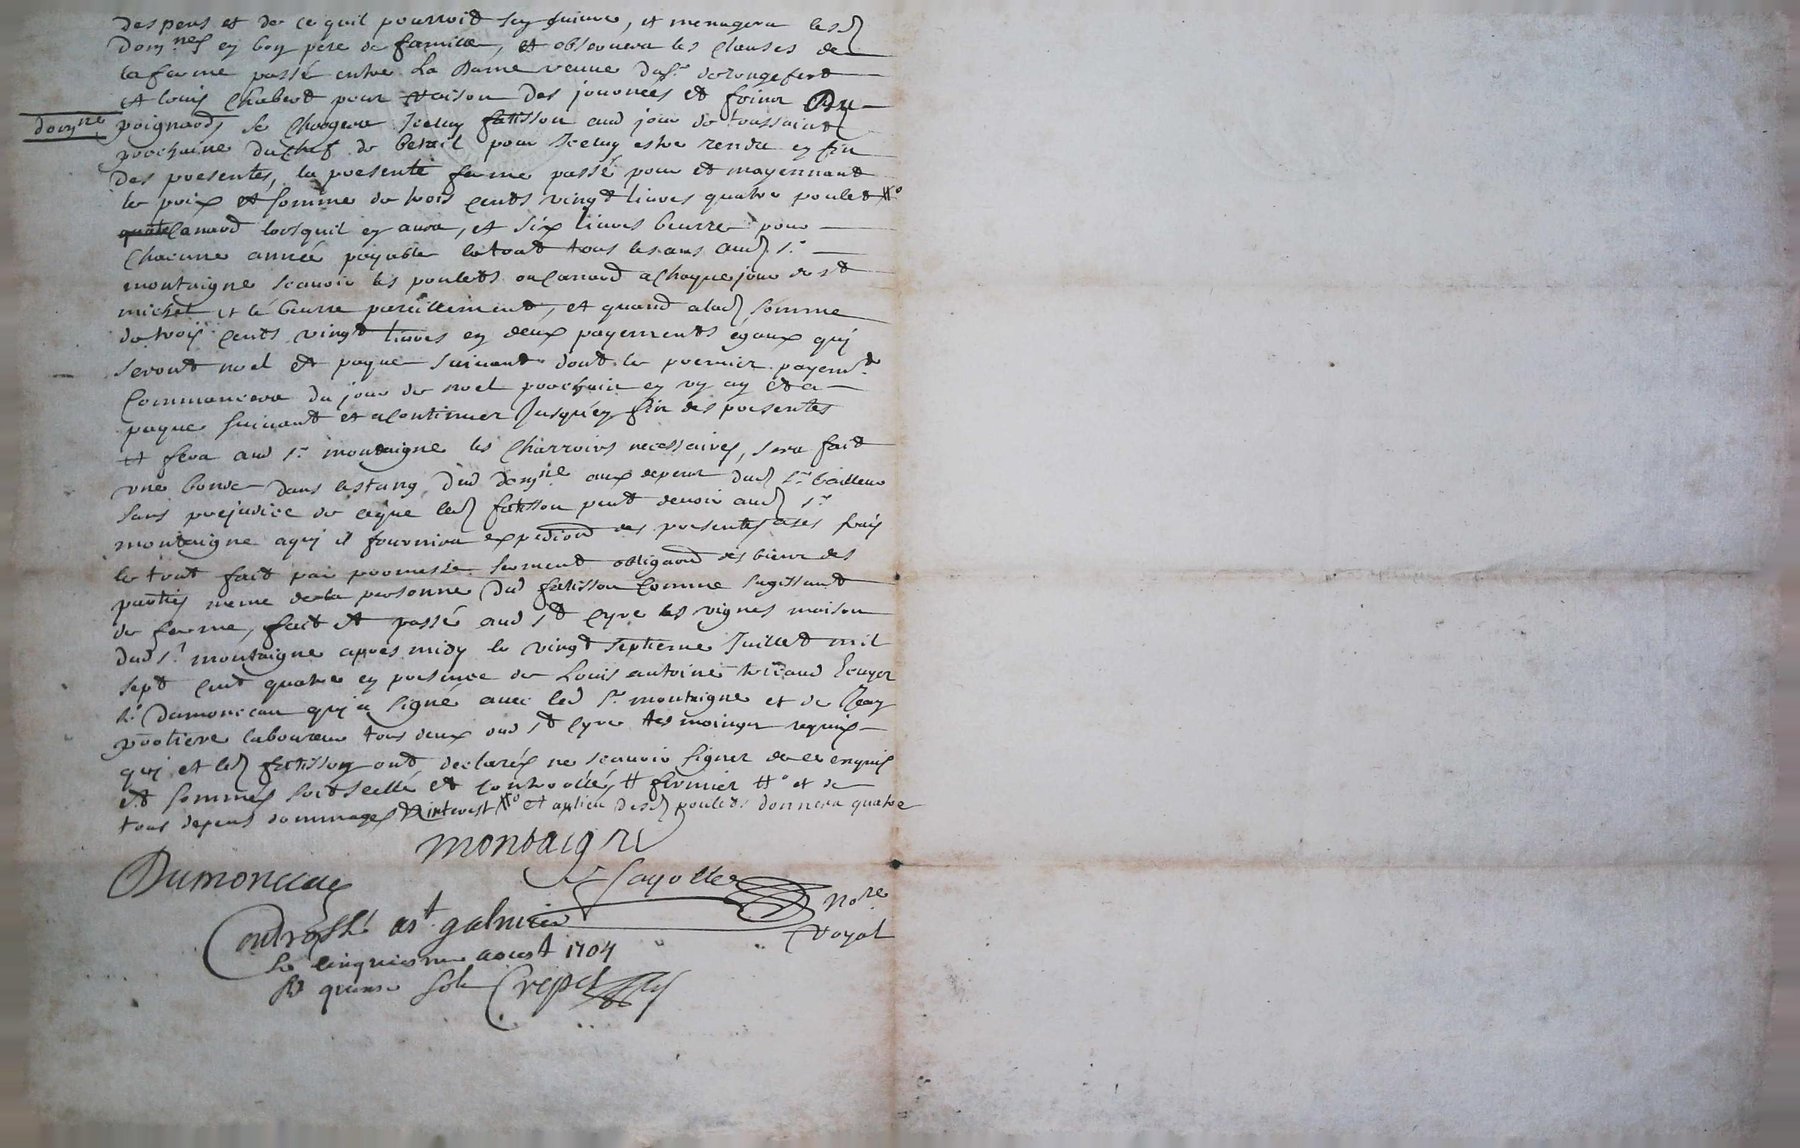 despens et de ce quil pourroit sen suivre, et menagera lesd
Domnes en bon pere de famille, et observera les clauses de
la ferme passé entre La Dame veuve du Sr
et louis Chabert pour raison des jouonces et
domne
poignard, se chargera Iceluy fatisson aud jour de toussaint
prochaine du chef de betail pour Iceluy estre rendu en fin
des presentes, la presente ferme passé pour et moyennant
le prix et somme de trois cents vingt livres quatre poulet #o
quate canard lorsquil en aura, et six livres beurre pour
chacune année payable le tout tous les ans aud Sr
montaigne scavoir les poulets ou canard a chaque jour de st
michel et le beurre pareillement, et quand a lad somme
de trois cents vingt livres en deux payements egaux qui
seront noel et paque suivant dont le premier payemt
commancera du jour de noel prochain en un an et a
paque suivant et a continuer Jusqu'en fin des presentes
# fera aud Sr montaigne les charroirs necessaires, sera fait
une bonde dans lestang dud domne aux depens dud Sr bailleur
sans prejudice de ce que led fatisson peut devoir aud Sr
montaigne a qui il fournira expedition des presentes a ses frais
le tout fait par promesse serment obligaon des biens des
parties meme de la personne dud fatisson comme sagissant
de ferme, fait et passé aud St Cyre les vignes maison
dud Sr montaigne apres midy le vingt septieme Juillet mil
sept cent quatre en presence de Louis antoine tricaud Ecuyer
Sr Dumonceau qui a signé avec led Sr montaigne et de Jean
laboureur tous deux dud St Cyre tesmoings requis
qui et led fatisson ont declarés ne scavoir signer de ce enquis
et sommés soit scellé et controollé, # fermier #o et de
tous depens dommages et interest #o et au lieu desd poulets donnera quatre
montaigne
Dumonceau
Nore
royal
Controllé a st galmier
le cinquiesme aoust 1704
R quinse sols Crepet